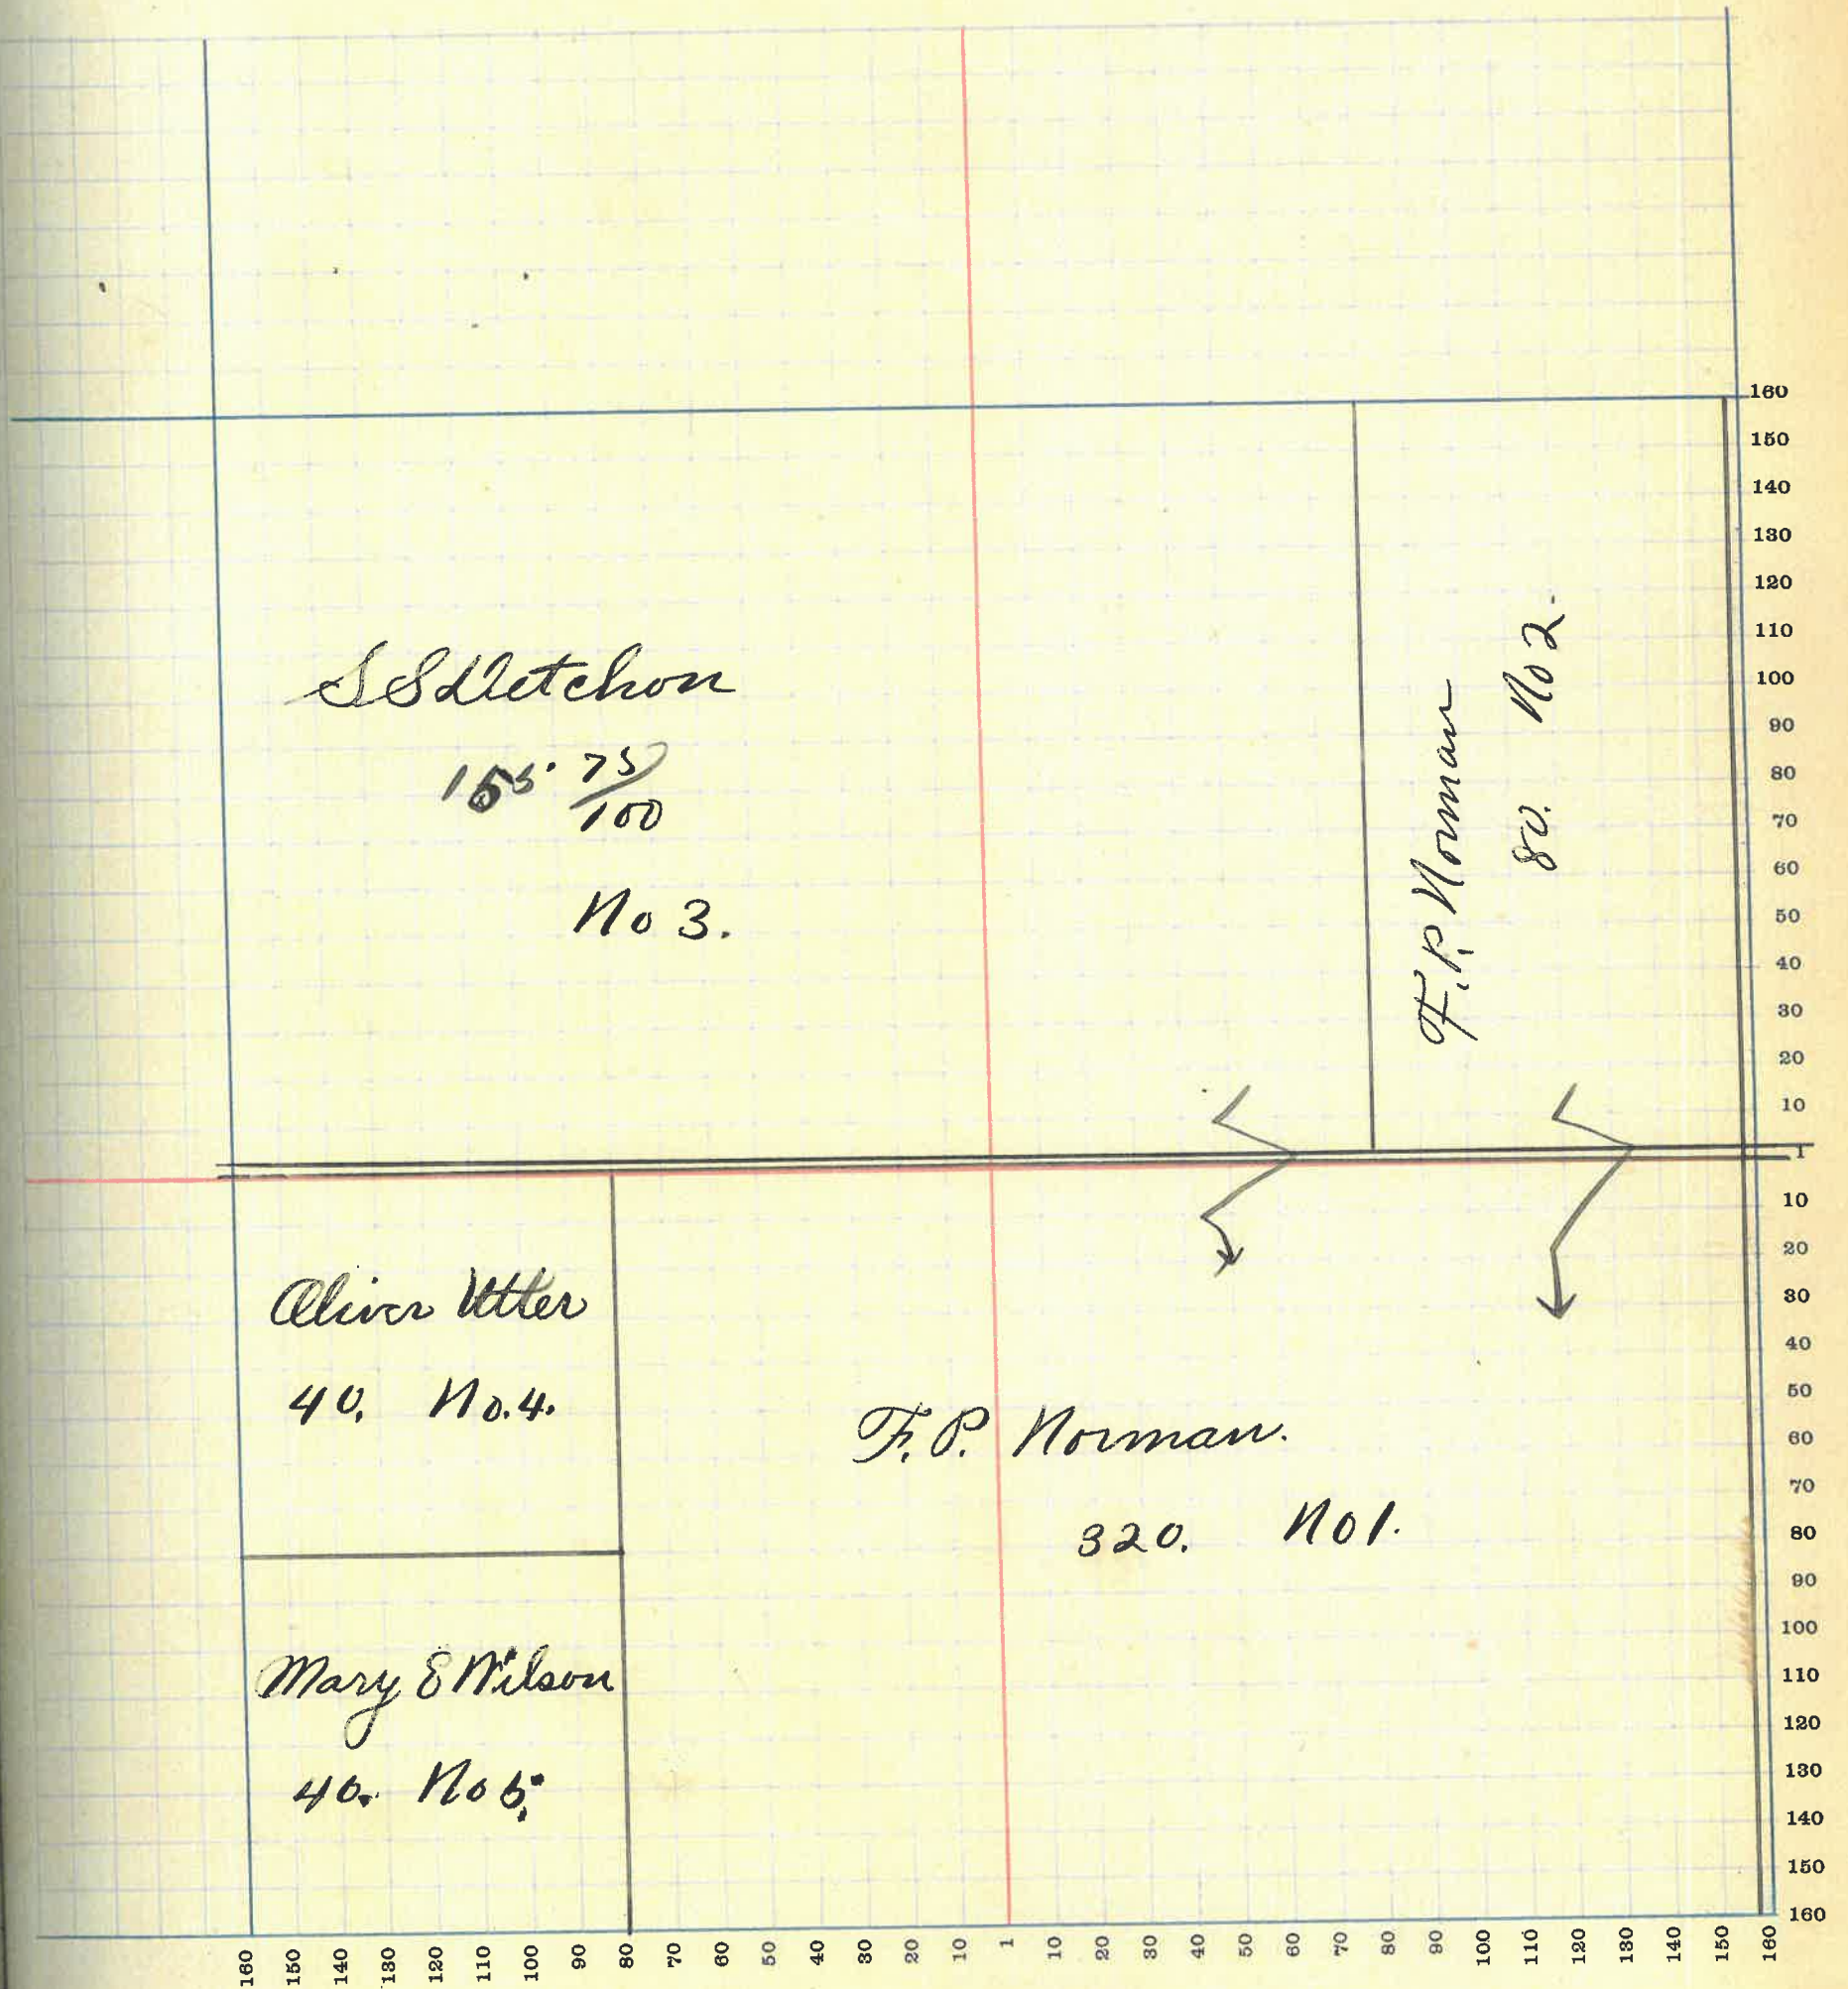 S S Detchon
155. 75/100
No 3.
F. P. Norman
80. No 2.
Oliver Utter
40. No. 4.
F. P. Norman.
320. No 1.
Mary E Wilson
40. No 5.
160
150
140
130
120
110
100
90
80
70
60
50
40
30
20
10
1
10
20
30
40
50
60
70
80
90
100
110
120
130
140
150
160
160 150 140 130 120 110 100 90 80 70 60 50 40 30 20 10 1 10 20 30 40 50 60 70 80 90 100 110 120 130 140 150 160